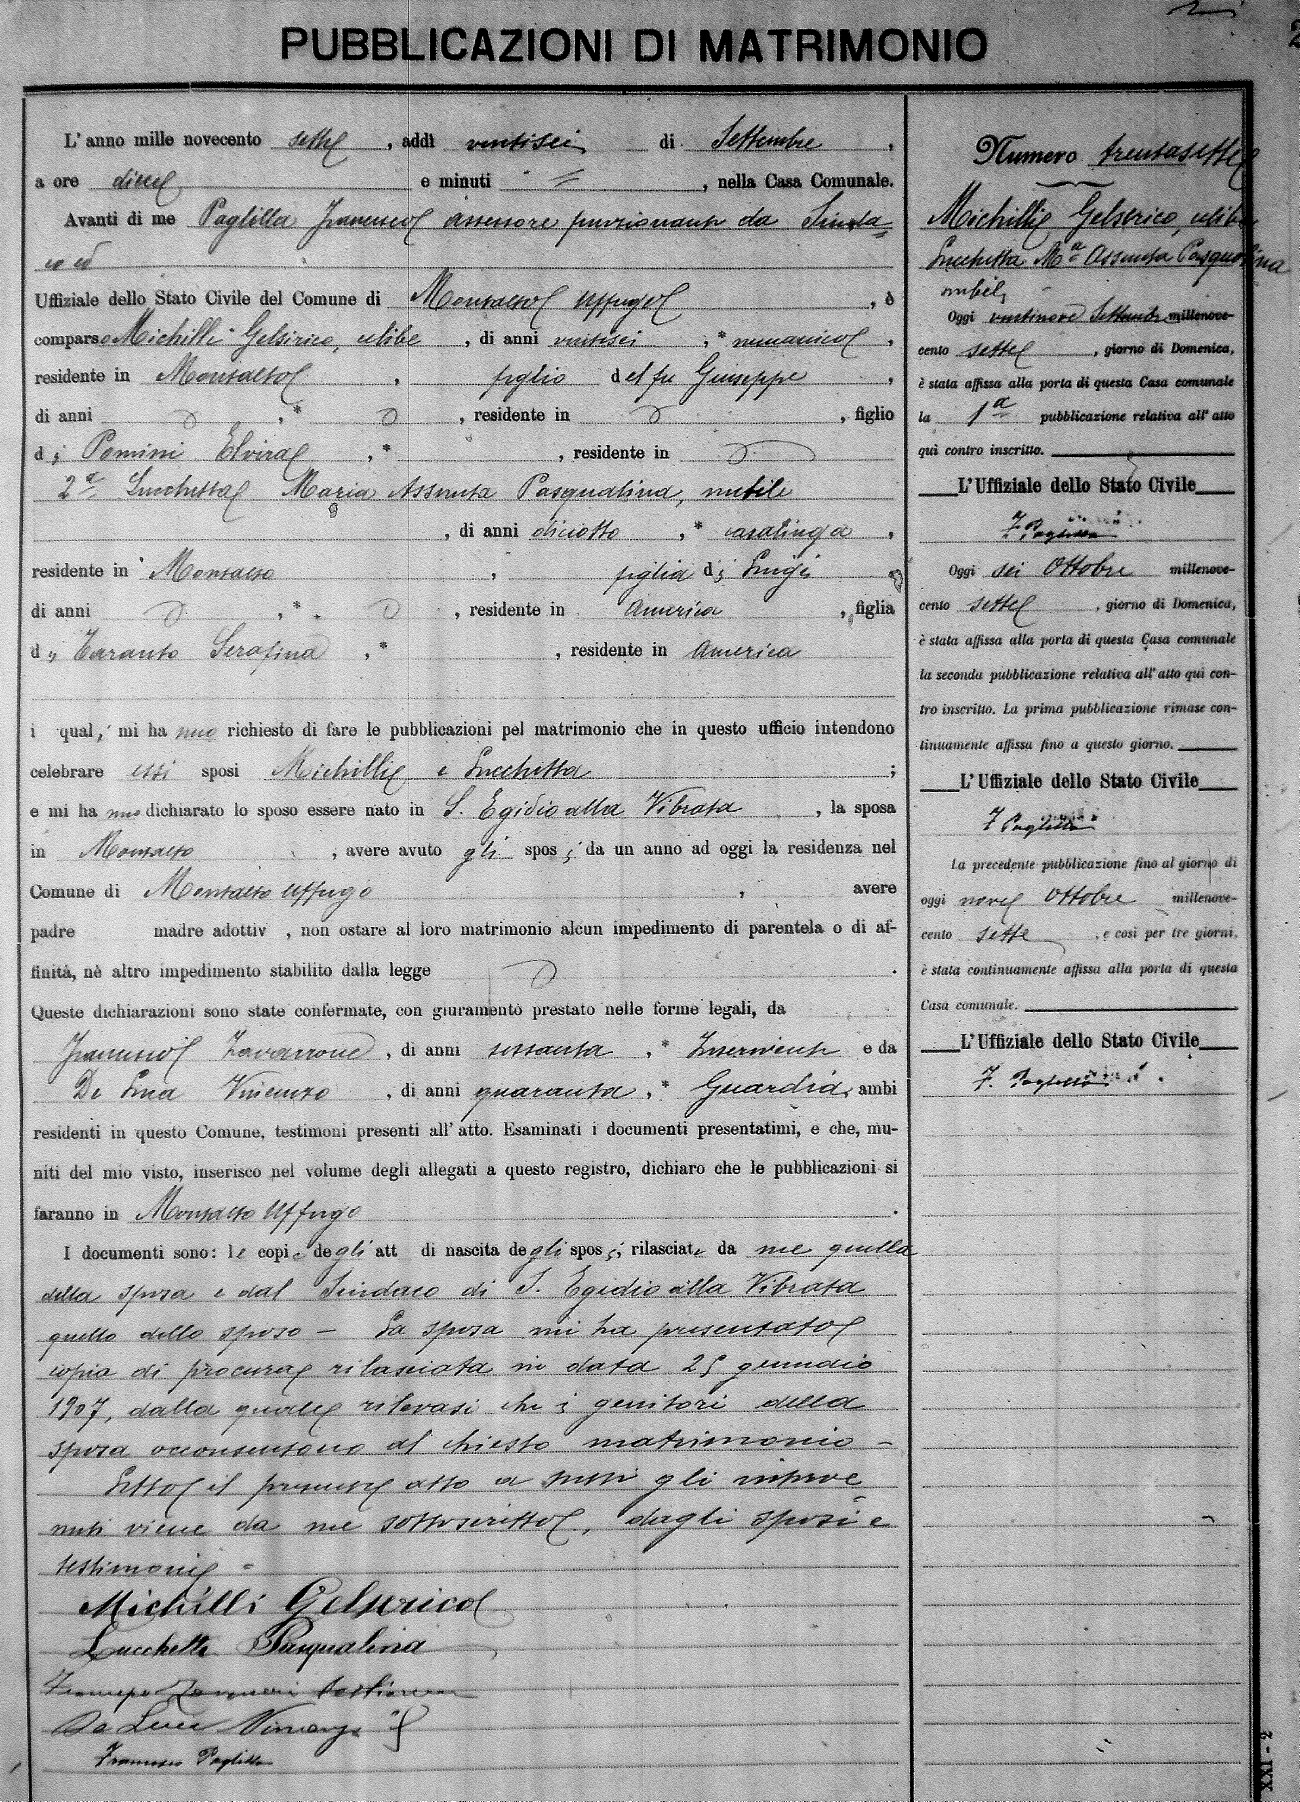 PUBBLICAZIONI DI MATRIMONIO
L'anno mille novecento sette, addì ventisei di Settembre,
a ore dieci e minuti =, nella Casa Comunale.
Avanti di me Paglilla Francesco assessore funzionante da Sinda=
co ed
Uffiziale dello Stato Civile del Comune di Montalto Uffugo, è
comparso Michilli Gelserico, celibe, di anni ventisei, * meccanico,
residente in Montalto, figlio del fu Giuseppe,
di anni , * , residente in , figlio
di Pomini Elvira, * , residente in
2ª Lucchetta Maria Assunta Pasqualina, nubile
, di anni diciotto, * casalinga,
residente in Montalto, figlia di Luigi
di anni , * , residente in America, figlia
di Taranto Serafina, * , residente in America
i quali mi hanno richiesto di fare le pubblicazioni pel matrimonio che in questo ufficio intendono
celebrare essi sposi Michilli e Lucchetta ;
e mi hanno dichiarato lo sposo essere nato in S. Egidio alla Vibrata, la sposa
in Montalto, avere avuto gli sposi da un anno ad oggi la residenza nel
Comune di Montalto Uffugo, avere
padre madre adottiv , non ostare al loro matrimonio alcun impedimento di parentela o di af-
finità, nè altro impedimento stabilito dalla legge .
Queste dichiarazioni sono state confermate, con giuramento prestato nelle forme legali, da
Francesco Zavarrone, di anni sessanta, * Inserviente e da
De Luca Vincenzo, di anni quaranta, * Guardia, ambi
residenti in questo Comune, testimoni presenti all'atto. Esaminati i documenti presentatimi, e che, mu-
niti del mio visto, inserisco nel volume degli allegati a questo registro, dichiaro che le pubblicazioni si
faranno in Montalto Uffugo .
I documenti sono: le copie degli att di nascita degli sposi, rilasciate da me quella
della sposa e dal Sindaco di S. Egidio alla Vibrata
quello dello sposo — La sposa mi ha presentato
copia di procura rilasciata in data 25 gennaio
1907, dalla quale rilevasi che i genitori della
sposa acconsentono al chiesto matrimonio —
Letto il presente atto a tutti gli interve
nuti viene da me sottoscritto, dagli sposi e
testimoni
Michilli Gelserico
Lucchetta Pasqualina
De Luca Vincenzo
Francesco Paglilla
Numero trentasette
Michilli Gelserico, celibe
Lucchetta Mª Assunta Pasqualina
nubile
Oggi ventinove Settembre millenove-
cento sette, giorno di Domenica,
è stata affissa alla porta di questa Casa comunale
la 1ª pubblicazione relativa all'atto
quì contro inscritto.
L'Uffiziale dello Stato Civile
F. Paglilla
Oggi sei Ottobre millenove-
cento sette, giorno di Domenica,
è stata affissa alla porta di questa Casa comunale
la seconda pubblicazione relativa all'atto quì con-
tro inscritto. La prima pubblicazione rimase con-
tinuamente affissa fino a questo giorno.
L'Uffiziale dello Stato Civile
F Paglilla
La precedente pubblicazione fino al giorno di
oggi nove Ottobre millenove-
cento sette, e così per tre giorni,
è stata continuamente affissa alla porta di questa
Casa comunale.
L'Uffiziale dello Stato Civile
F. Paglilla
XXI - 2